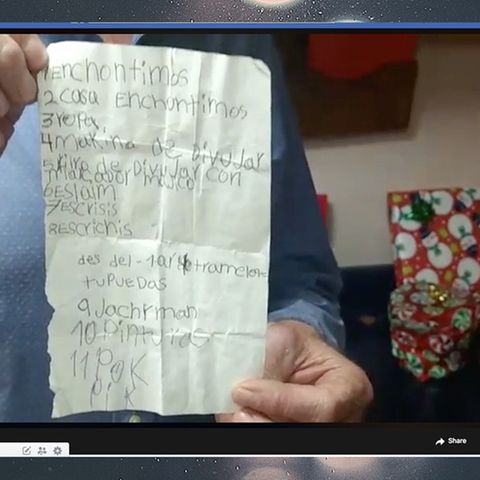 1 Enchontimos
2 casa Enchuntimos
3 ropa
4 Makina de Divujar
5 libro de Divujar con
Marcador Majico
6 Eslaim
7 Escrisis
8 Escrichis
des del-
tuPUEDas
9 Jachrman
10 Pinturas
11 Pok
Share